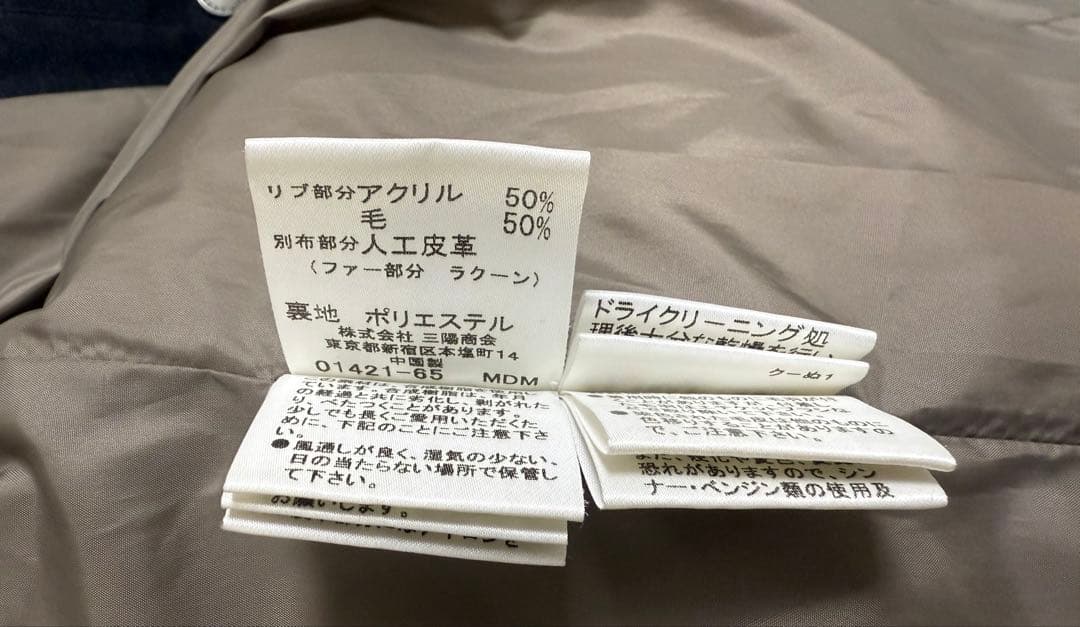 リブ部分アクリル 50%
毛 50%
別布部分人工皮革
(ファー部分 ラクーン)
裏地 ポリエステル
株式会社 三陽商会
東京都新宿区本塩町14
中国製
01421-65 MDM
の経過と共に劣化し、剥がれた
り、べたつくことがあります。
少しでも長くご愛用いただくた
めに、下記のことにご注意下さ
い。
●風通しが良く、湿気の少ない、
日の当たらない場所で保管し
て下さい。
お願いします。
ドライクリーニング処
理後十分な乾燥を行い
クーぬ1
で、ご注意下さい。
恐れがありますので、シン
ナー・ベンジン類の使用及